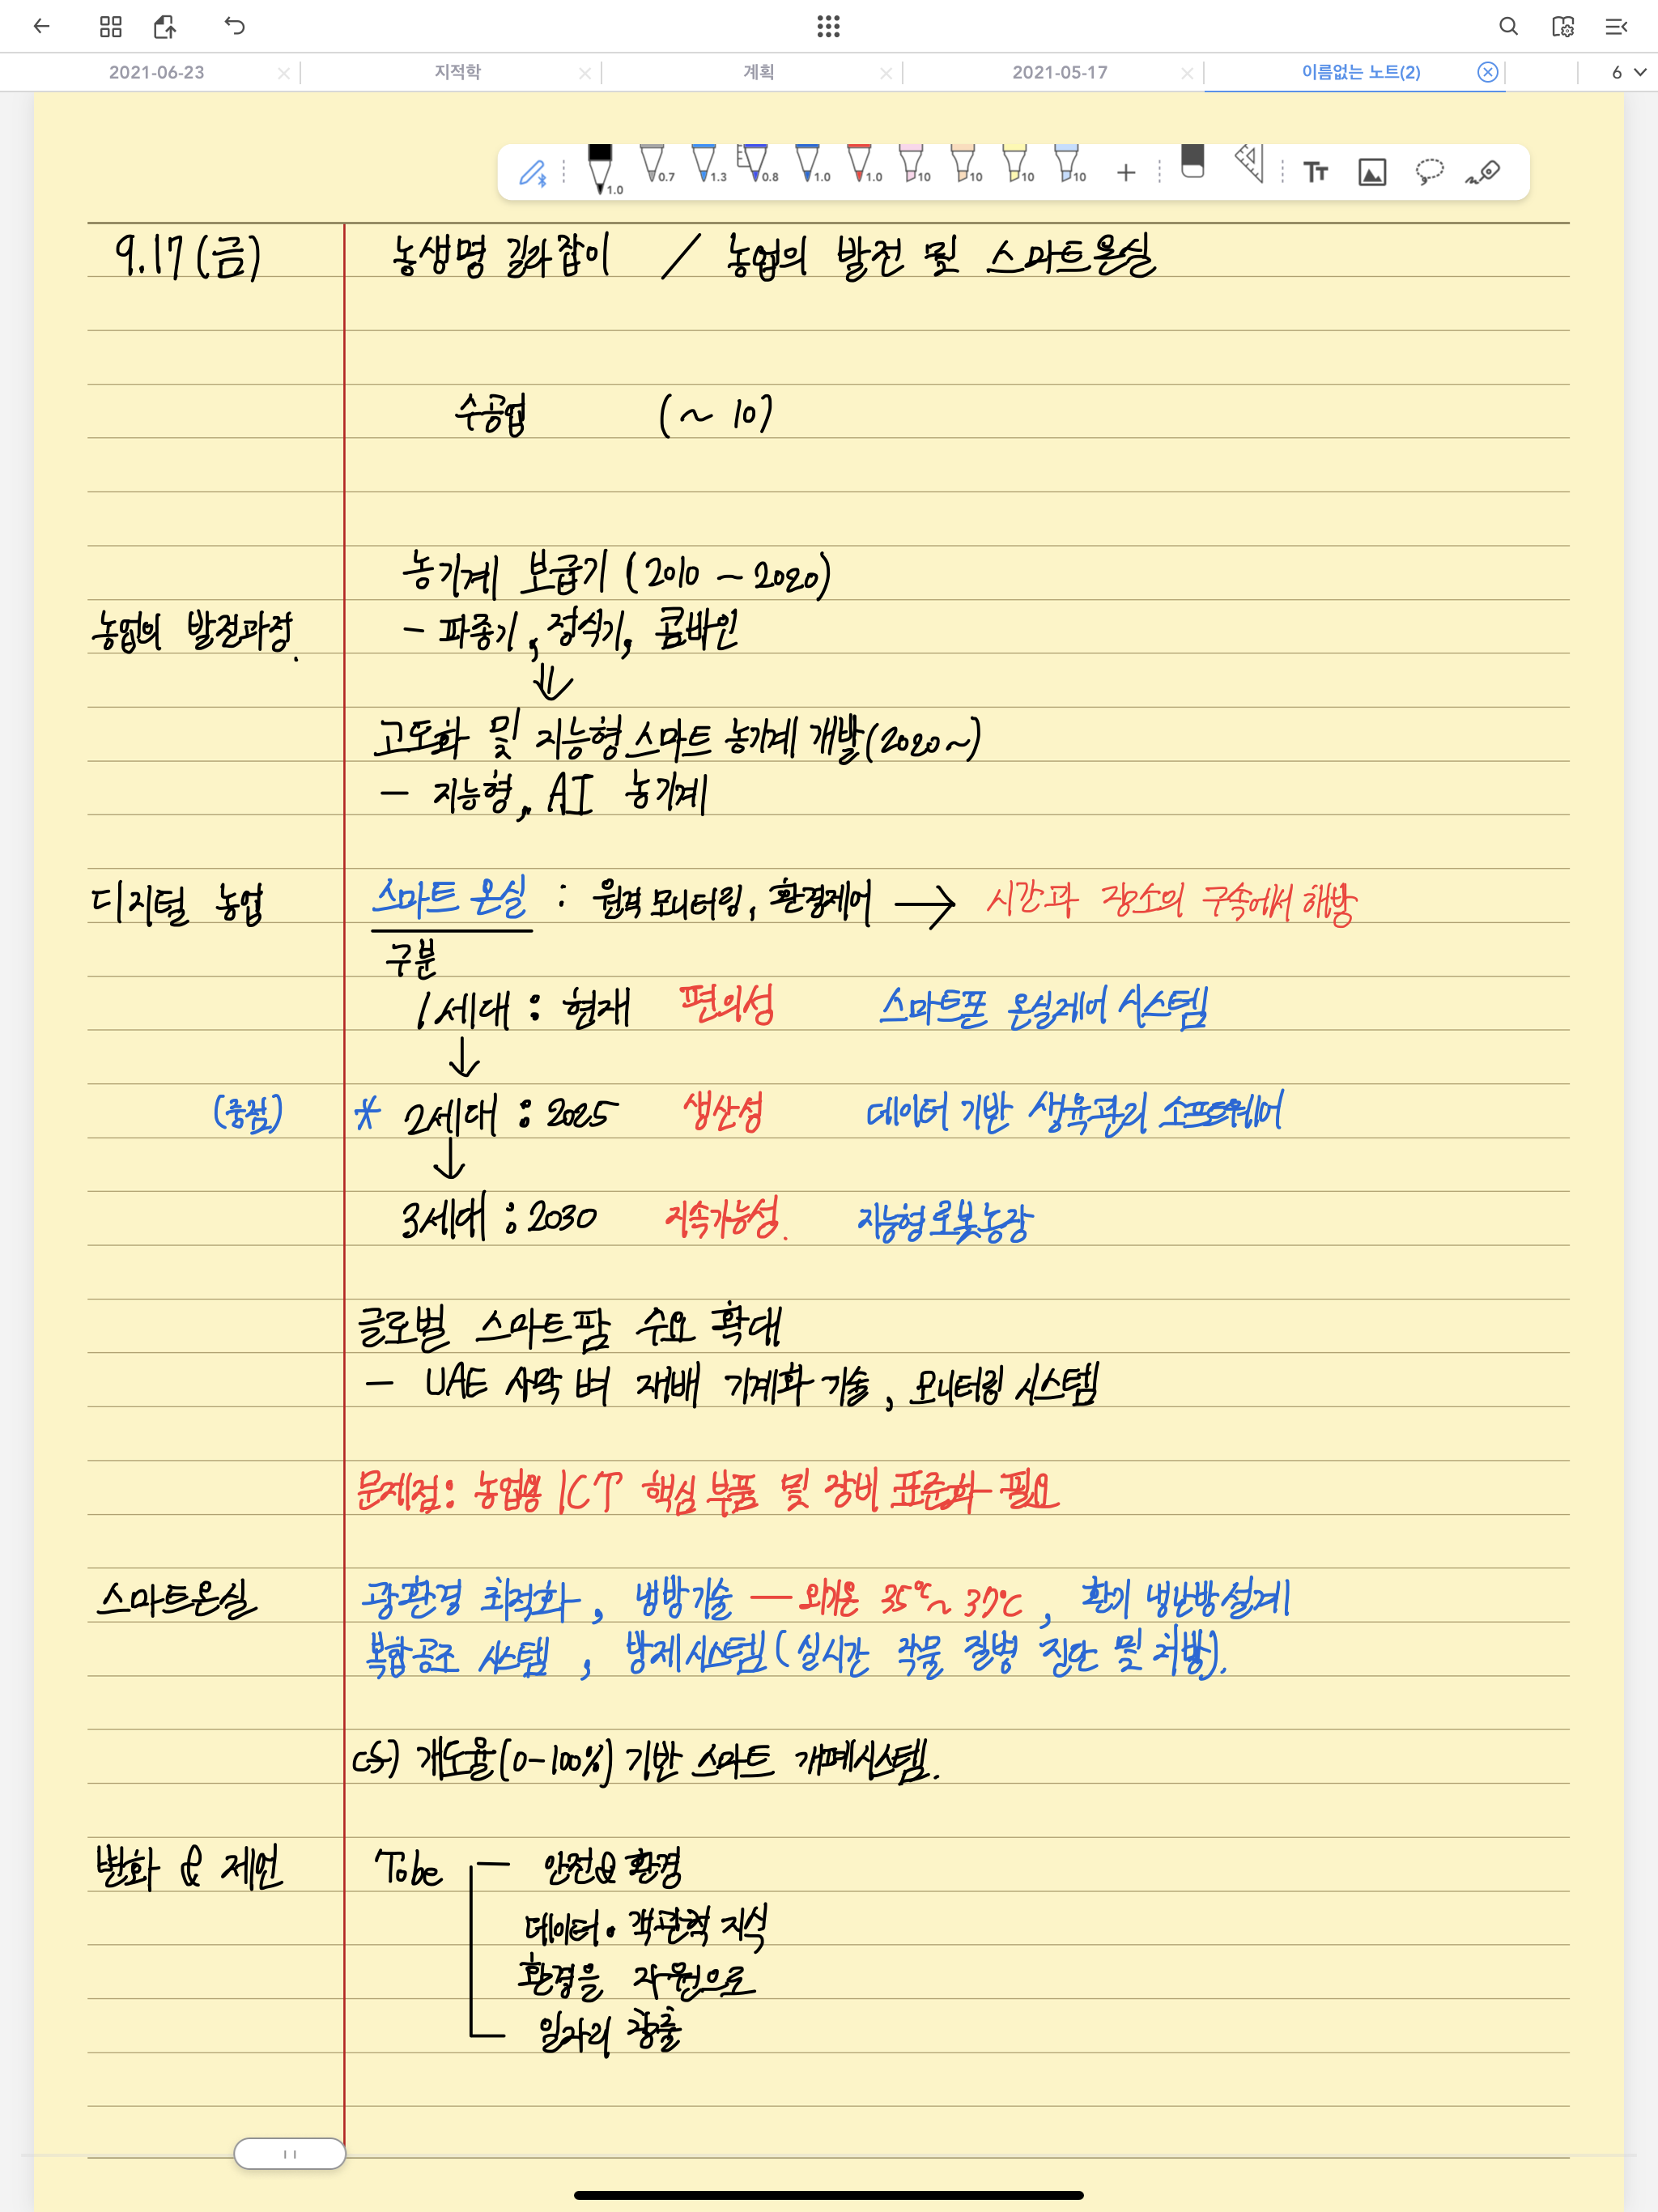 2021-06-23 지적학 계획 2021-05-17 이름없는 노트(2) 6
1.0 0.7 1.3 0.8 1.0 1.0 10 10 10 10
9.17(금) 농생명 길라잡이 / 농업의 발전 및 스마트온실
수공업 (~ 10)
농기계 보급기 (2010 ~ 2020)
농업의 발전과정. - 파종기, 정식기, 콤바인
⇓
고도화 및 지능형 스마트 농기계 개발(2020~)
- 지능형, AI 농기계
디지털 농업 스마트 온실 : 원격 모니터링, 환경제어 → 시간과 장소의 구속에서 해방
구분
1세대 : 현재 편의성 스마트폰 온실제어 시스템
↓
(중점) * 2세대 : 2025 생산성 데이터 기반 생육관리 소프트웨어
↓
3세대 : 2030 지속가능성. 지능형 로봇농장
글로벌 스마트팜 수요 확대
- UAE 사막 벼 재배 기계화 기술, 모니터링 시스템
문제점: 농업용 ICT 핵심 부품 및 장비 표준화 필요
스마트온실 광환경 최적화, 냉방기술 — 외기온 35℃~ 37℃, 환기 냉난방설계
복합공조 시스템, 방제시스템(실시간 작물 질병 진단 및 처방).
개도율(0-100%) 기반 스마트 개폐시스템.
변화 & 제언 Tobe - 안전&환경
데이터. 객관적 지식
환경을 자원으로
일자리 창출